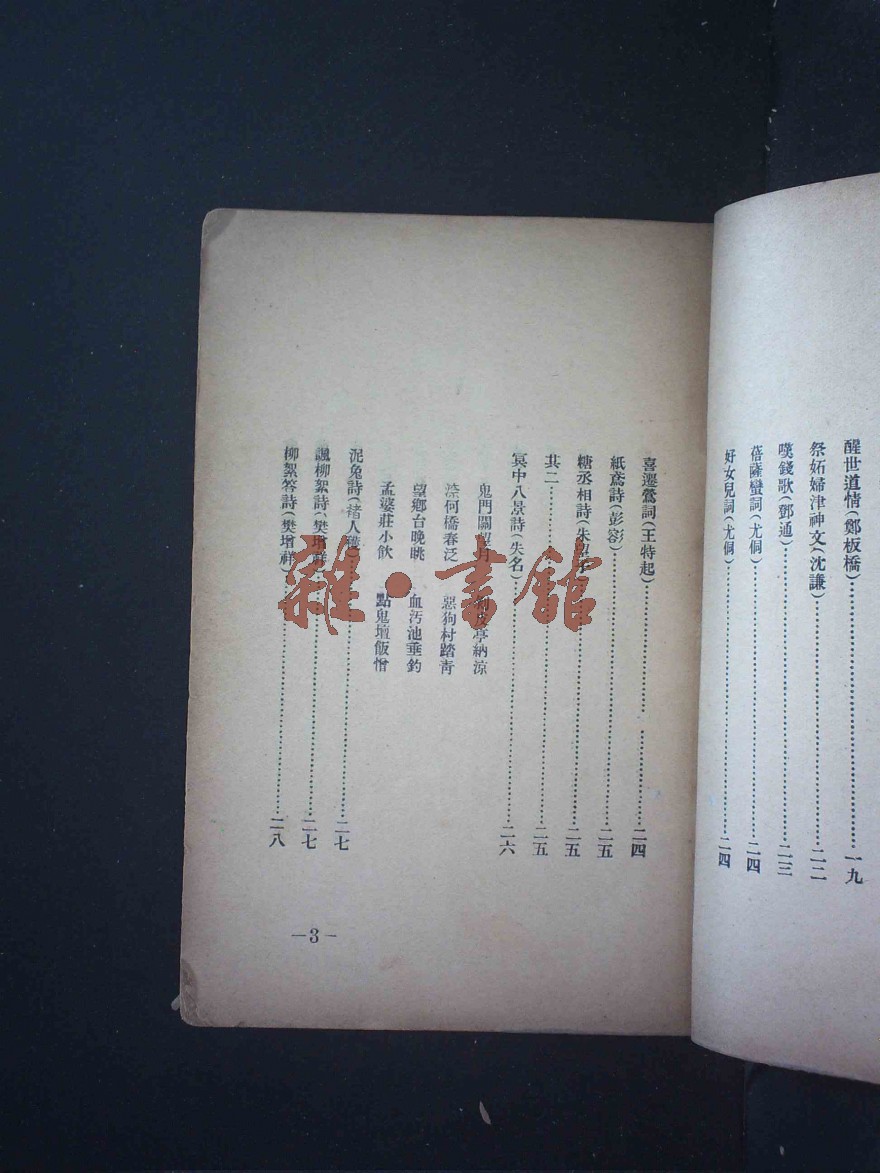 醒世道情(鄭板橋)…………一九
祭妬婦津神文(沈謙)…………二二
嘆錢歌(鄧通)…………二三
菩薩蠻詞(尤侗)…………二四
好女兒詞(尤侗)…………二四
喜遷鶯詞(王特起)…………二四
紙鳶詩(彭)…………二五
糖丞相詩(朱…………二五
其二…………二五
冥中八景詩(失名)…………二六
鬼門關望月 亭納涼
柰何橋春泛 惡狗村踏青
望鄉台晚眺 血汚池垂釣
孟婆莊小飲 點鬼壇飯僧
泥兔詩(褚人穫)…………二七
諷柳絮詩(樊增祥)…………二七
柳絮答詩(樊增祥)…………二八
—3—
雜·書館